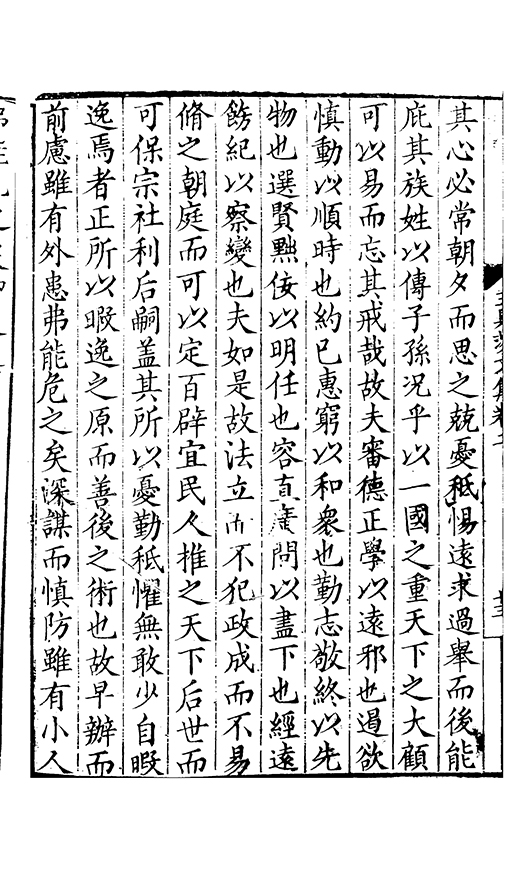 其心必常朝夕而思之兢憂秪惕遠求過舉而後能
庇其族姓以傳子孫况乎以一國之重天下之大顧
可以易而忘其戒哉故夫審德正學以遠邪也遏欲
慎動以順時也約已惠窮以和衆也勤志敬終以先
物也選賢黜佞以明任也容直廣問以盡下也經遠
餝紀以察變也夫如是故法立而不犯政成而不易
脩之朝庭而可以定百辟宜民人推之天下后世而
可保宗社利后嗣盖其所以憂勤秪懼無敢少自暇
逸焉者正所以暇逸之原而善後之術也故早辦而
前慮雖有外患弗能危之矣深謀而慎防雖有小人